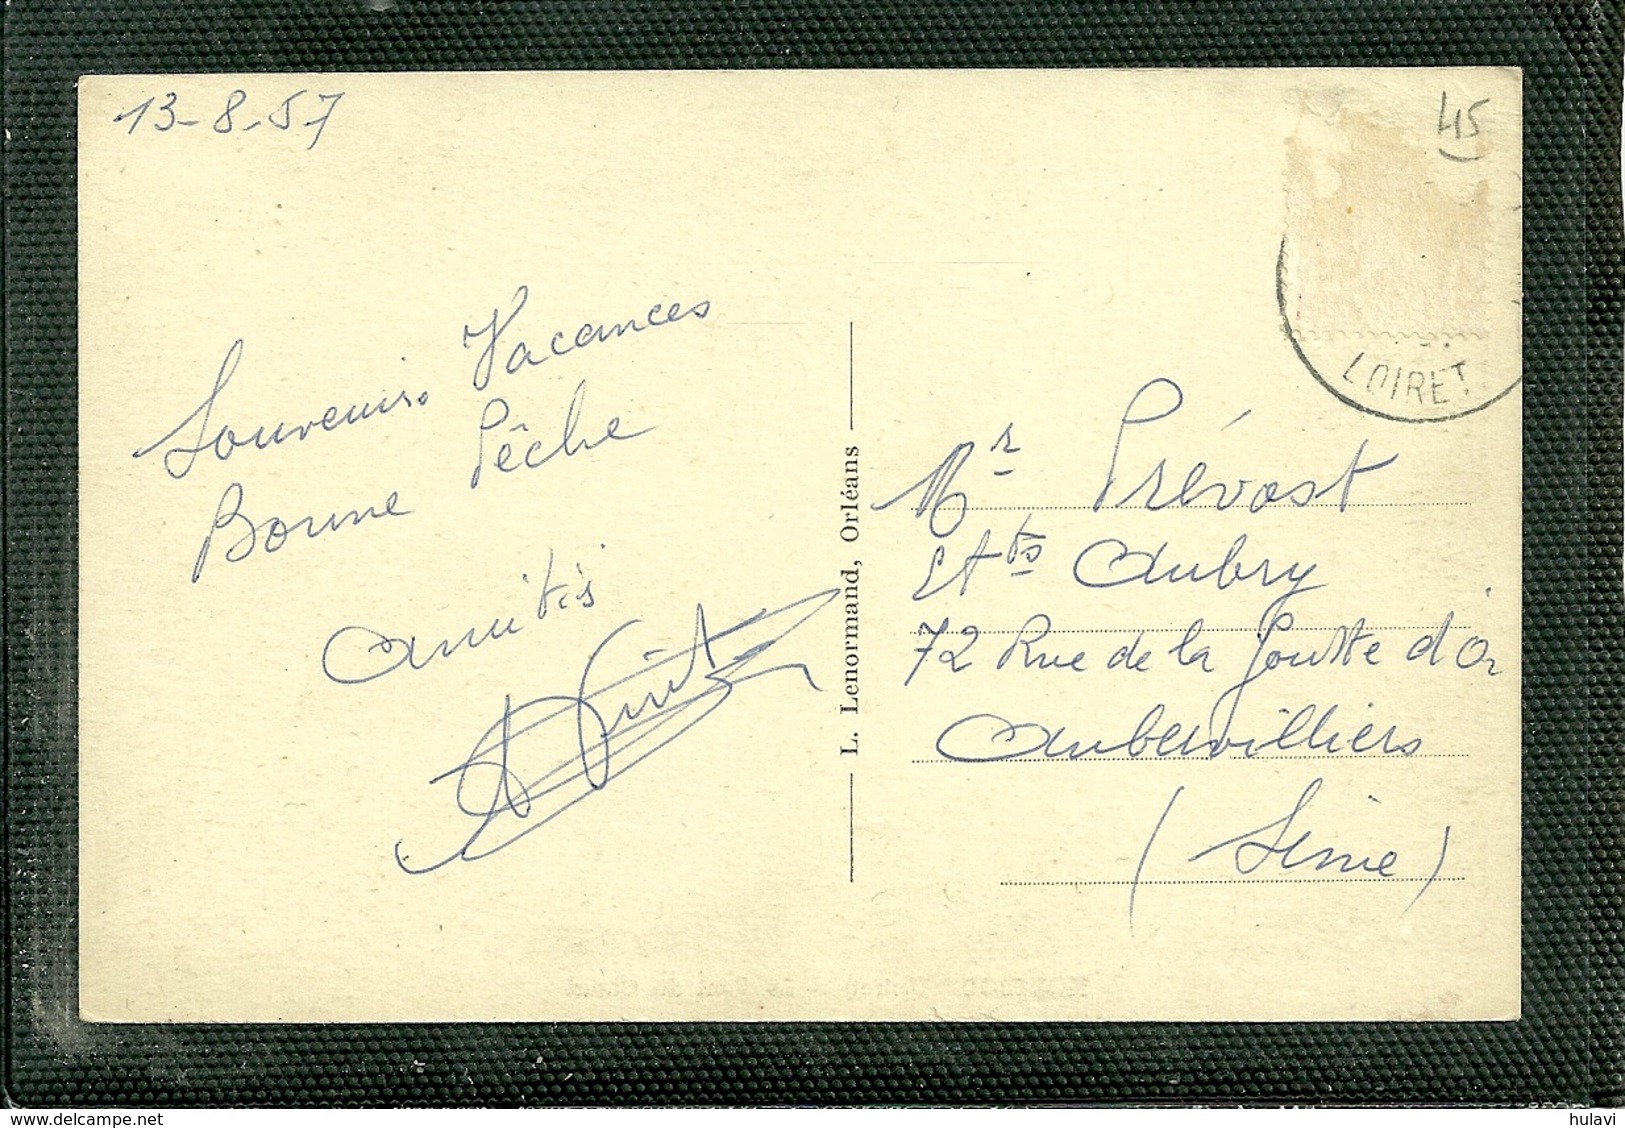 13-8-57
45
LOIRET
Souvenirs Vacances
Bonne Pêche
Amitiés
L. Lenormand, Orléans
Mr Prévost
Ets Aubry
72 Rue de la Goutte d'Or
Aubervilliers
(Seine)
hulavi